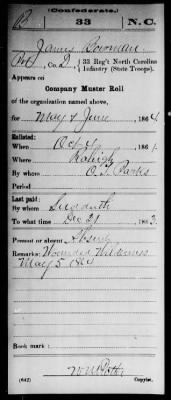 (Confederate.)
B 33 N.C.
James Bowman
Pvt, Co. D, 33 Reg't North Carolina
Infantry (State Troops).
Appears on
Company Muster Roll
of the organization named above,
for May & June, 1864
Enlisted:
When Oct 4, 1861.
Where Raleigh
By whom O. T. Parks
Period
Last paid:
By whom Sudduth
To what time Dec 31, 1863.
Present or absent Absent
Remarks: Wounded Wilderness
May 5 1864
Book mark:
(642) Copyist.